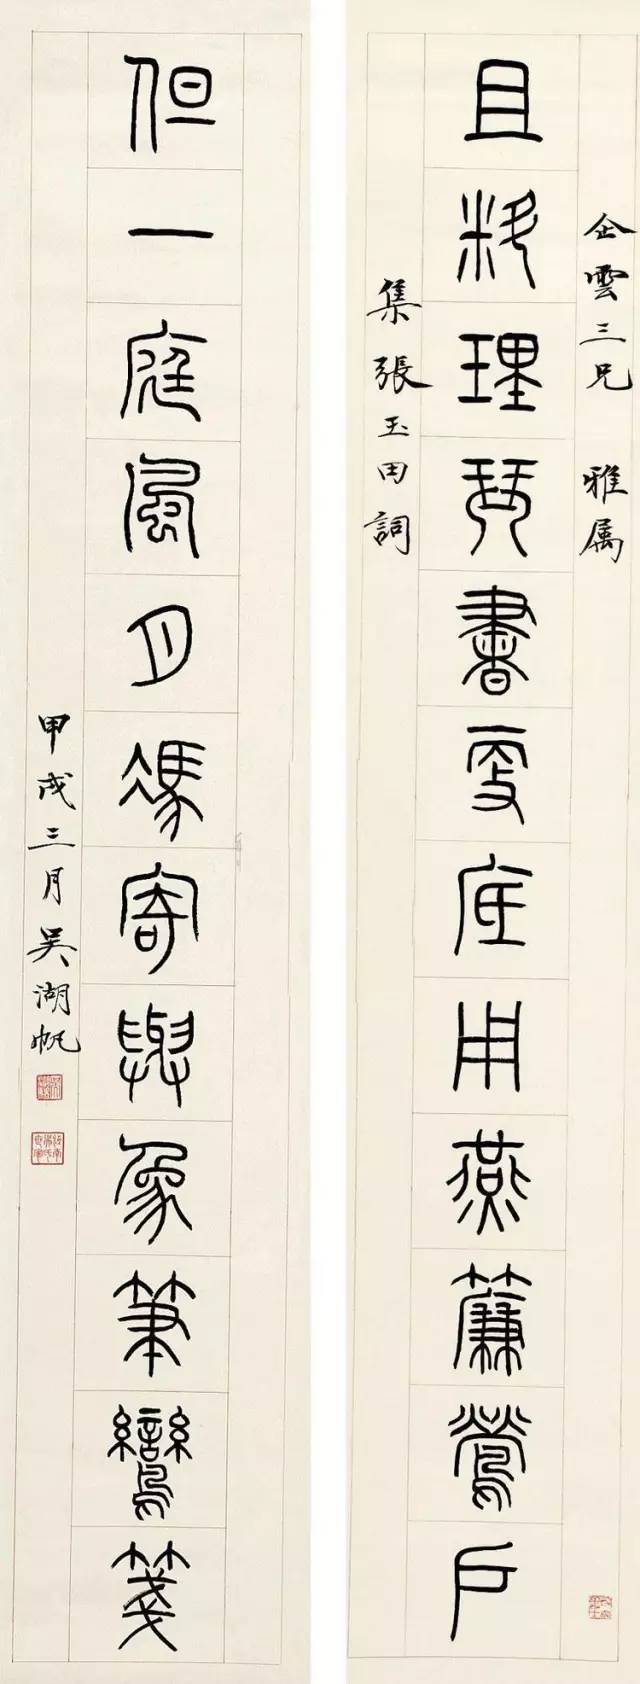 企雲三兄 雅属
且料理琴書更底用燕簾鶯戶
集張玉田詞
但一庭風月馮寄與象筆鸞箋
甲戌三月吳湖帆